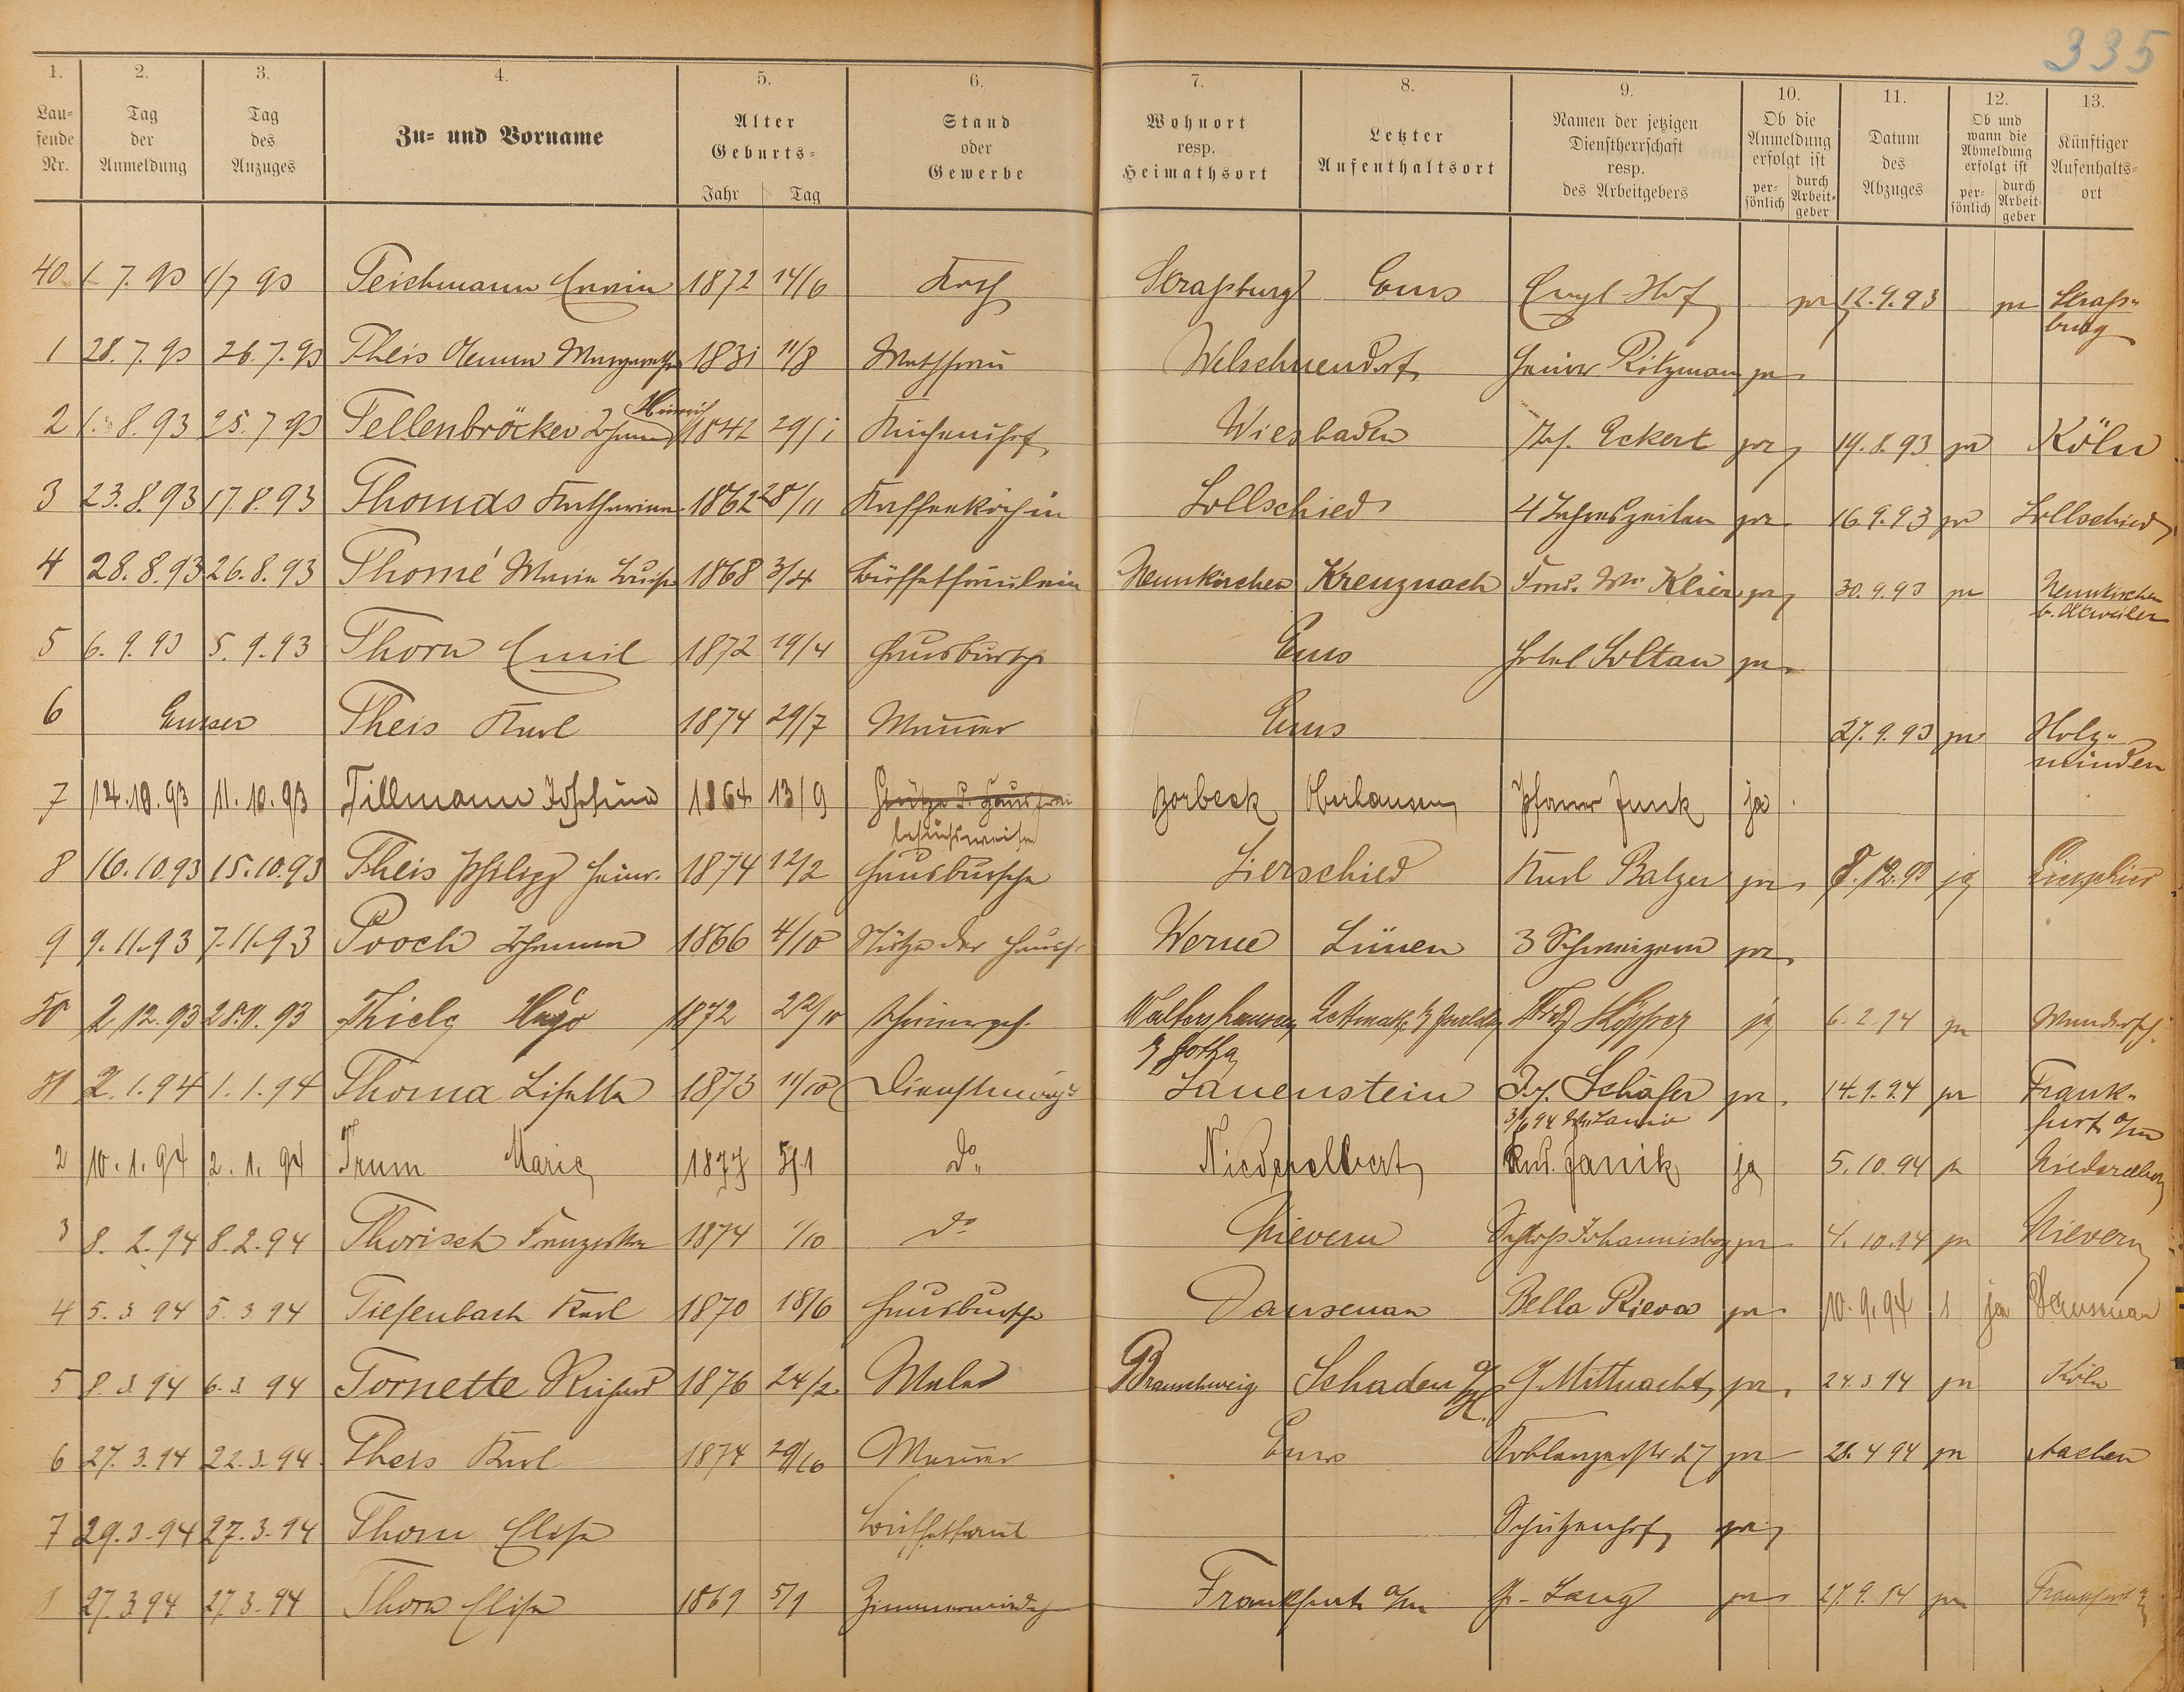 335
1. 2. 3. 4. 5. 6. 7. 8. 9. 10. 11. 12. 13.
Lau-
fende
Nr.
Tag
der
Anmeldung
Tag
des
Anzuges
Zu- und Vorname
Alter
Geburts-
Jahr Tag
Stand
oder
Gewerbe
Wohnort
resp.
Heimathsort
Letzter
Aufenthaltsort
Namen der jetzigen
Dienstherrschaft
resp.
des Arbeitgebers
Ob die
Anmeldung
erfolgt ist
per-
sönlich
durch
Arbeit-
geber
Datum
des
Abzuges
Ob und
wann die
Abmeldung
erfolgt ist
per-
sönlich
durch
Arbeit-
geber
Künftiger
Aufenthalts-
ort
40 1. 7. 93 1/7 93 Teichmann Erwin 1872 14/6 Koch Straßburg Ems Engl. Hof ja 12.9.93 ja Straß-
burg
1 28. 7. 93 26. 7. 93 Theis 1831 11/8 Welschneudorf ja
Heinrich
2 1. 8. 93 25. 7 93 Tellenbröcker Johann 1842 29/1 Küchenchef Wiesbaden Eckert ja 19.8.93 ja Köln
3 23.8.93 17.8.93 Thomas Katharina 1862 28/11 Kaffeeköchin Lollschied 4 Jahreszeiten ja 16.9.93 ja Lollschied
4 28.8.93 26.8.93 Thomé Maria Luise 1868 3/4 Büffetfräulein Neunkirchen Kreuznach Klier ja 30.9.93 ja Neunkirchen
b. Ottweiler
5 6. 9. 93 5. 9. 93 Thorn Emil 1872 19/4 Hausbursche Ems Hotel Soltau ja
6 Emser Theis Karl 1874 29/7 Maurer Ems 27. 9. 93 ja Holz-
minden
7 14.10.93 11.10.93 Tillmann Josefine 1864 13/9 Stütze d. Hausfrau Borbeck Oberhausen Pfarrer Junk ja
besuchsweise
8 16.10.93 15.10.93 Theis Philipp Heinr. 1874 12/2 Hausbursche Lierschied Karl Balzer ja 8.12.93 ja Lierschied
9 9.11.93 7.11.93 Pooch Johanna 1866 4/10 Stütze der Hausfr. Werne Lünen 3 Schweizern ja
50 2 12. 93 28.11.93 Thiele Hugo 1872 22/10 Schreinergeh. Waltershausen ja 6.2.94 ja Wanderschf.
Gotha
51 2. 1. 94 1. 1. 94 Thoma Lisetta 1873 11/10 Dienstmagd Lauenstein Schäfer ja 14.9.94 ja Frank-
3/6 94
furt a/m
2 10. 1. 94 2. 1. 94 Trum Marie 1877 5/1 do Niederelbert Rud. Janik ja 5. 10. 94 ja Niederelbert
3 8. 2. 94 8. 2. 94 Thorisch Franziska 1874 1/10 do Nievern Schloß Johannisberg ja 4. 10. 94 ja Nievern
4 5. 3 94 5. 3 94 Tiefenbach Karl 1870 18/6 Hausbursche Dausenau Bella Rieva ja 10. 9. 94 ja Dausenau
5 8. 3. 94 6. 3. 94 Tornette Richard 1876 24/2 Maler Braunschweig Schaden Mittnacht ja 24.3 94 ja Köln
6 27. 3. 94 22. 3. 94 Theis Karl 1874 29/10 Maurer Ems Koblenzerstr. 27 ja 28. 4 94 ja Aachen
7 29.3.94 27.3.94 Thorn Elise Büffetfräul Schützenhof ja
27.3 94 27. 3. 94 Thorn Elise 1869 5/9 Zimmermädch Frankfurt a/m Lang ja 27.9.94 ja Frankfurt